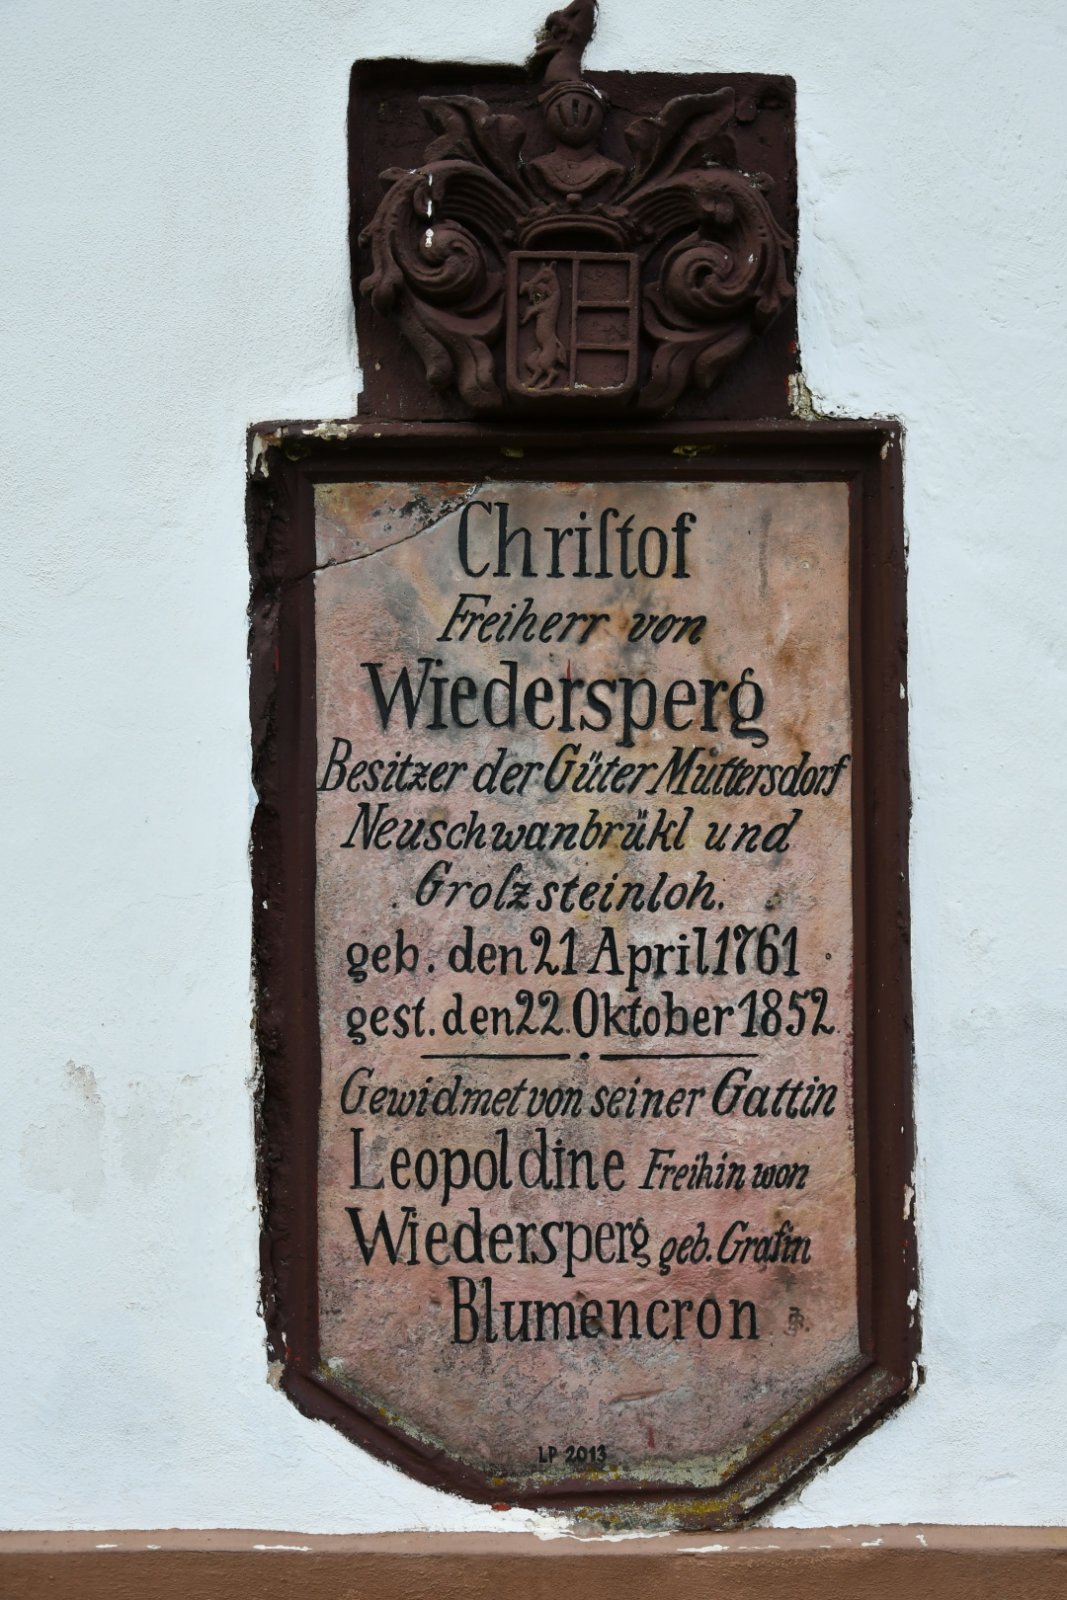 Chriſtof
Freiherr von
Wiedersperg
Besitzer der Güter Muttersdorf
Neuschwanbrükl und
Groſzsteinloh.
geb. den 21 April 1761
gest. den 22. Oktober 1852
Gewidmet von seiner Gattin
Leopoldine Freihin won
Wiedersperg geb. Grafin
Blumencron
LP 2013